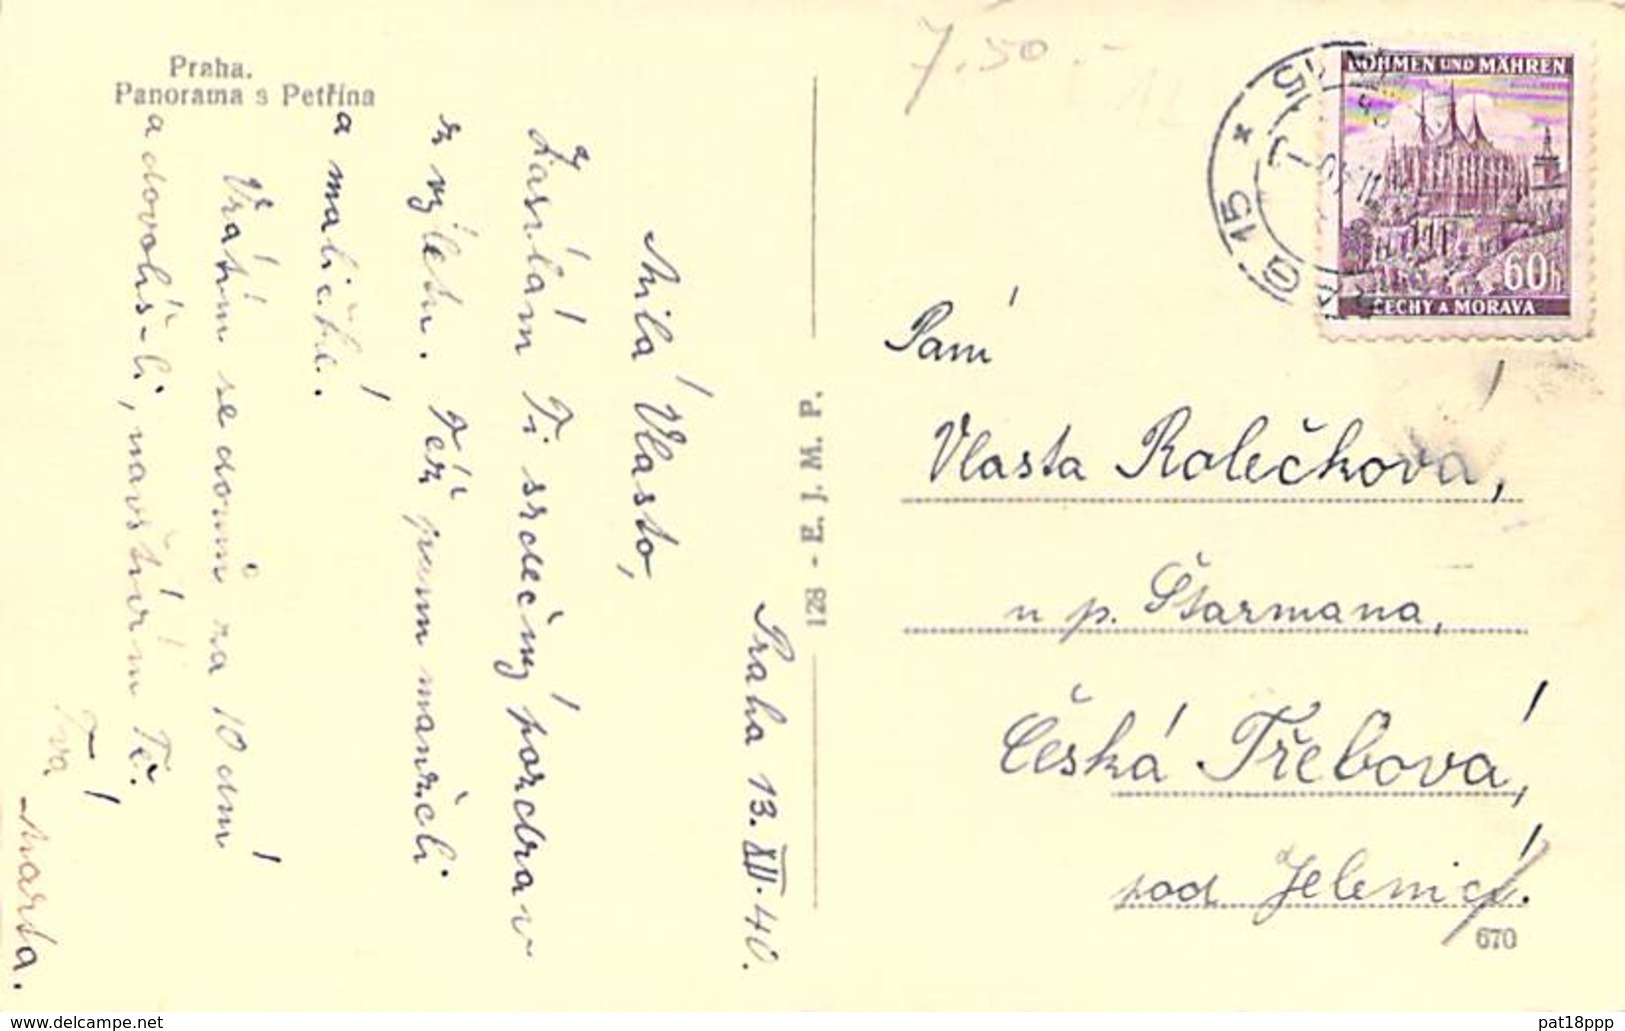 Praha.
Panorama s Petřína
Praha 13. XII. 40.
Milá Vlasto,
Zasílám Ti srdečný pozdrav
z výletu. Též panu manželi
a maličké.
Vrátím se domů za 10 dní
a dovolíš-li, navštívím Tě.
Tvá
Marta.
128 - E. J. M. P.
7.50.-
BÖHMEN UND MÄHREN
60h
ČECHY A MORAVA
15
Paní
Vlasta Rolečková,
u p. Štarmana,
Česká Třebová,
pod Jelenicí.
670
www.delcampe.net
pat18ppp